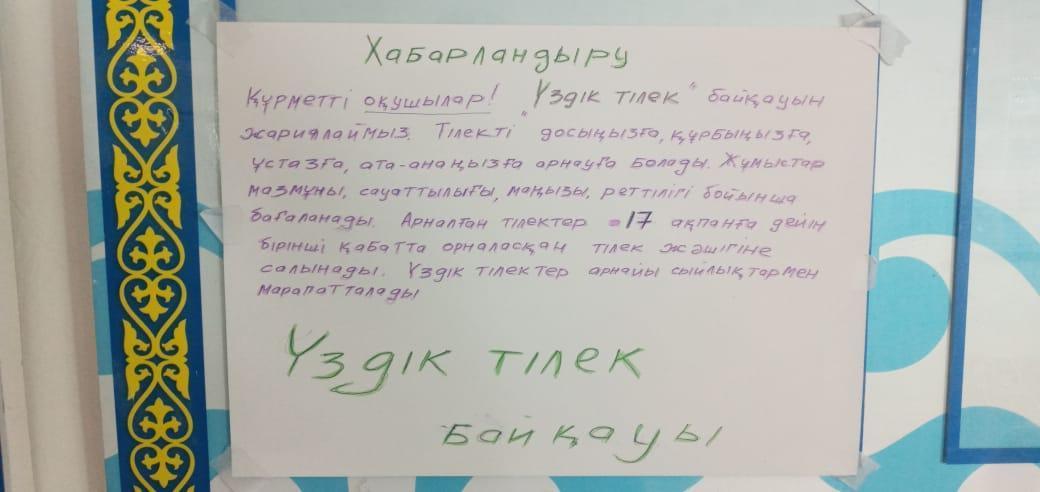 Хабарландыру
Құрметті оқушылар! "Үздік тілек" байқауын
жариялаймыз. Тілекті досыңызға, құрбыңызға,
ұстазға, ата-анаңызға арнауға болады. Жұмыстар
мазмұны, сауаттылығы, маңызы, реттілігі бойынша
бағаланады. Арналған тілектер 17 ақпанға дейін
бірінші қабатта орналасқан тілек жәшігіне
салынады. Үздік тілектер арнайы сыйлықтармен
марапатталады
Үздік тілек
байқауы